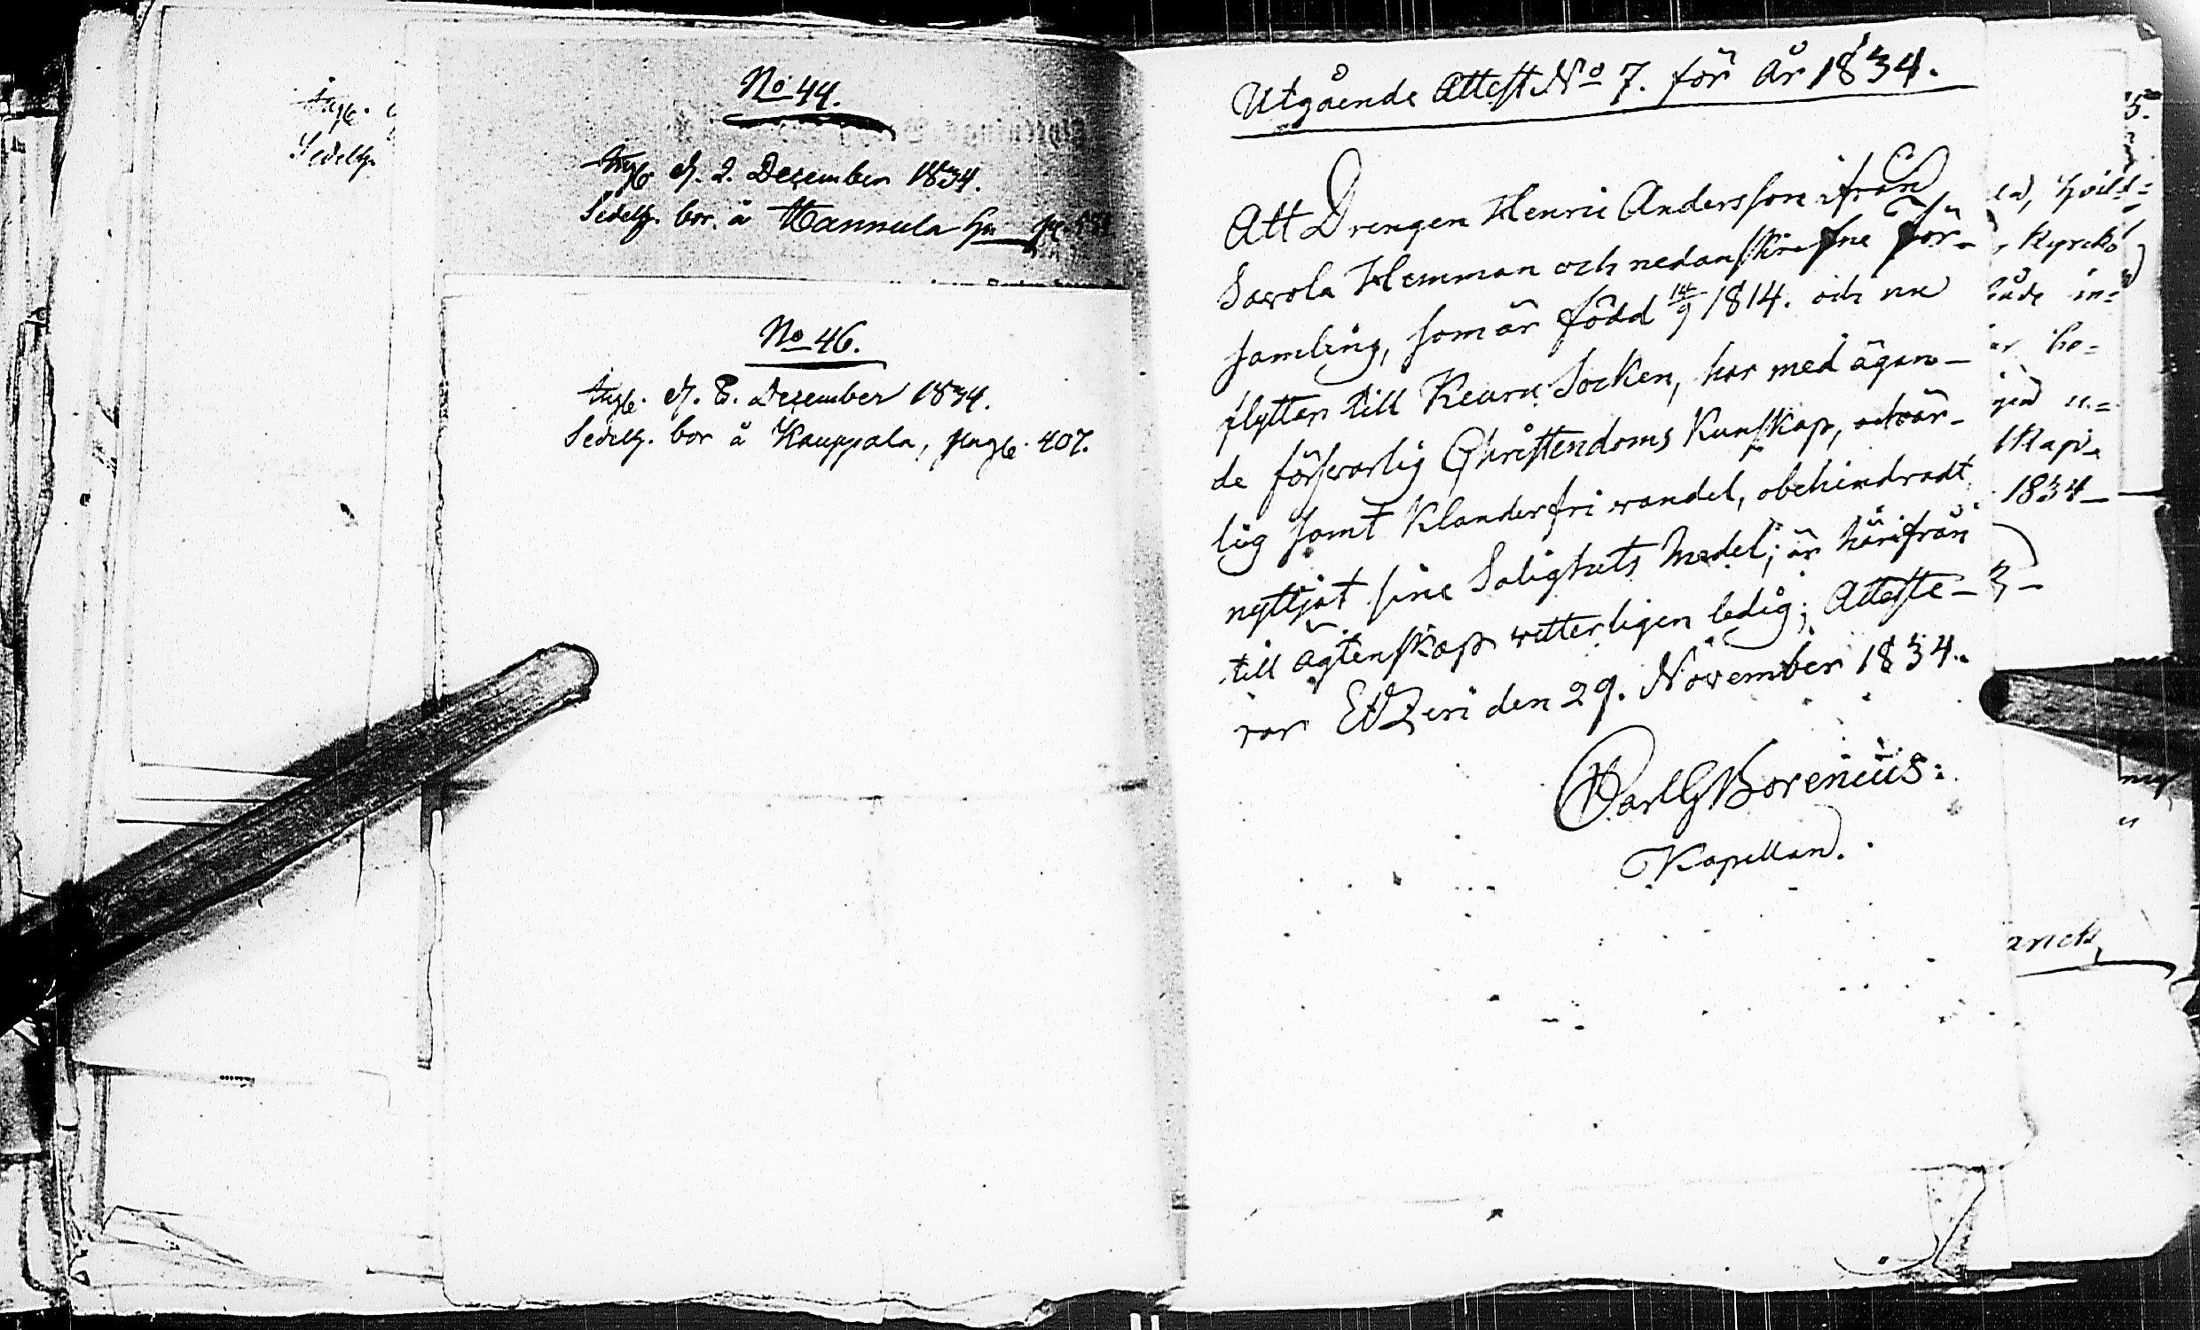 No 44.
Ingb. d. 2. December 1834.
Sedelh. bor. å Mannula
No 46.
Ingb. d. 8. December 1834.
Sedelh. bor å Kauppala, pag. 407.
Utgående Attest No 7. för år 1834.
Att Drengen Henric Andersson ifrån
Sawola Hemman och nedanskrefne För-
samling, som är född 14/9 1814. och nu
flyttar till Keuru Socken, har med ägan-
de förswarlig Christendoms Kunskap, och är-
lig samt Klanderfri wandel, obehindradt
nyttjat sine Salighets Medel; är härifrån
till ägtenskap witterligen ledig; Atteste-
rar Etzeri den 29. November 1834.
Carl G Borenius:
Kapellan.
Ingb.
Sedelh.
5.
Kyrcko
in=
1834